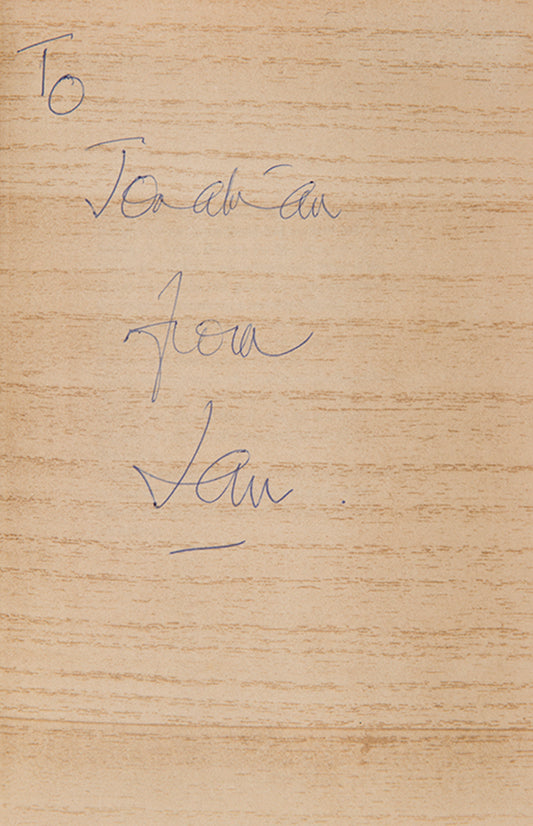 To
Jonathan
from
Ian .